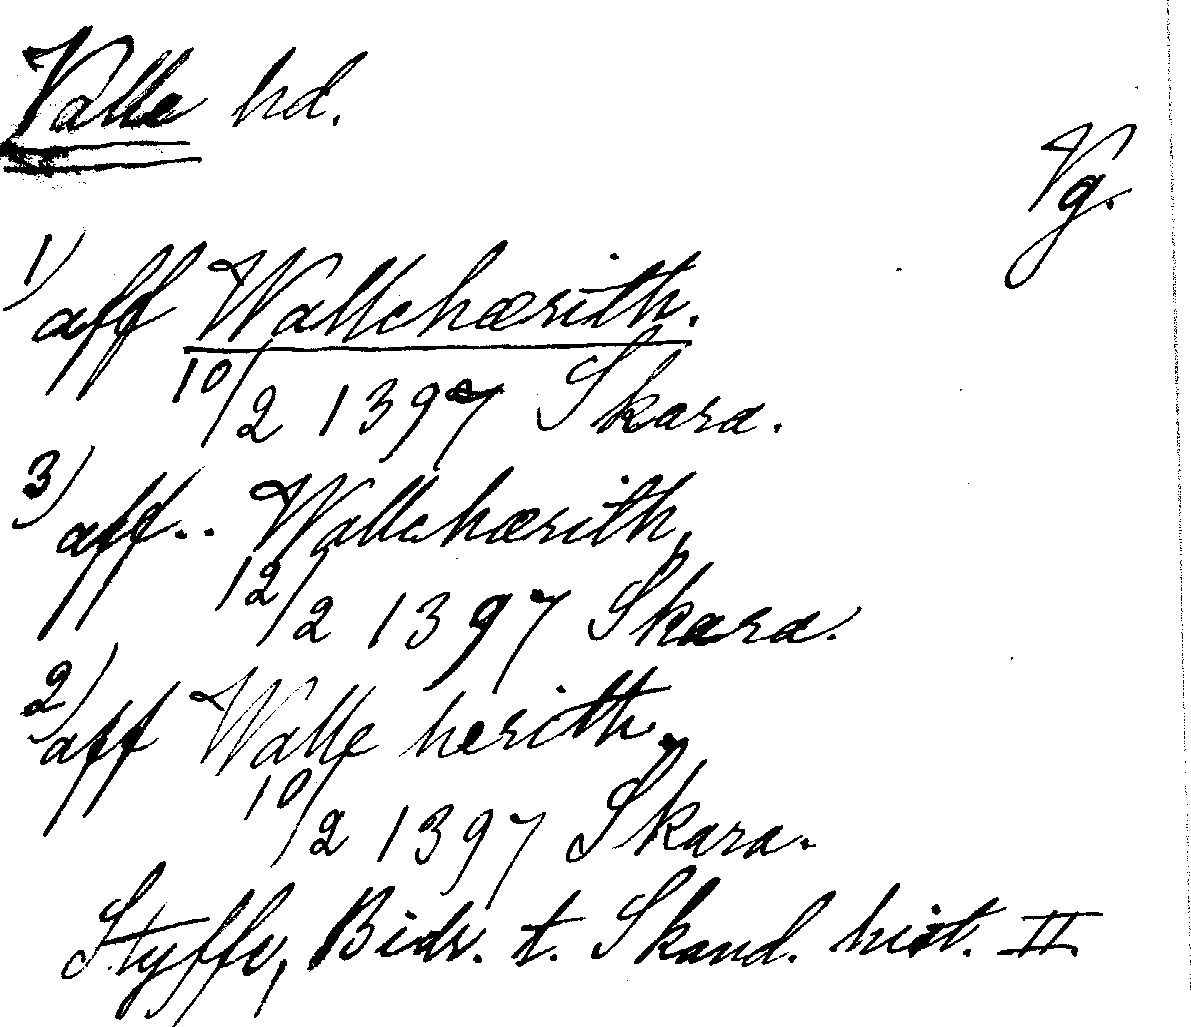 Valle hd.
Vg.
1) aff Wallehærith.
10/2 1397 Skara.
3) aff.. Wallehærith,
12/2 1397 Skara.
2) aff Walle herith,
10/2 1397 Skara.
Styffe, Bidr. t. Skand. hist. II.